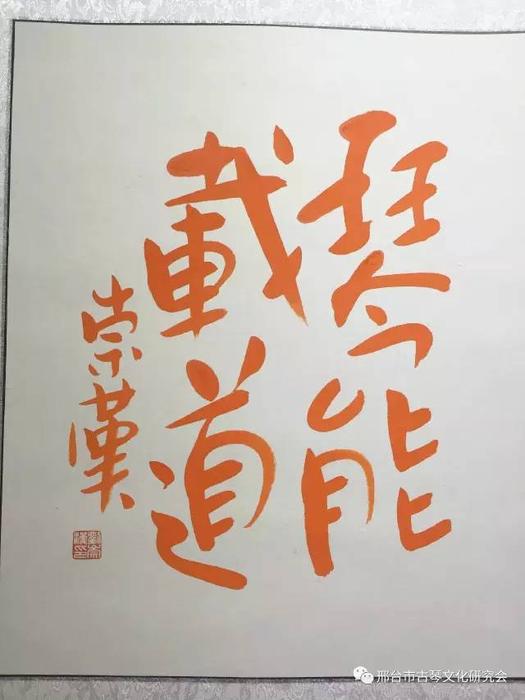 琴能
載道
崇漢
邢台市古琴文化研究会